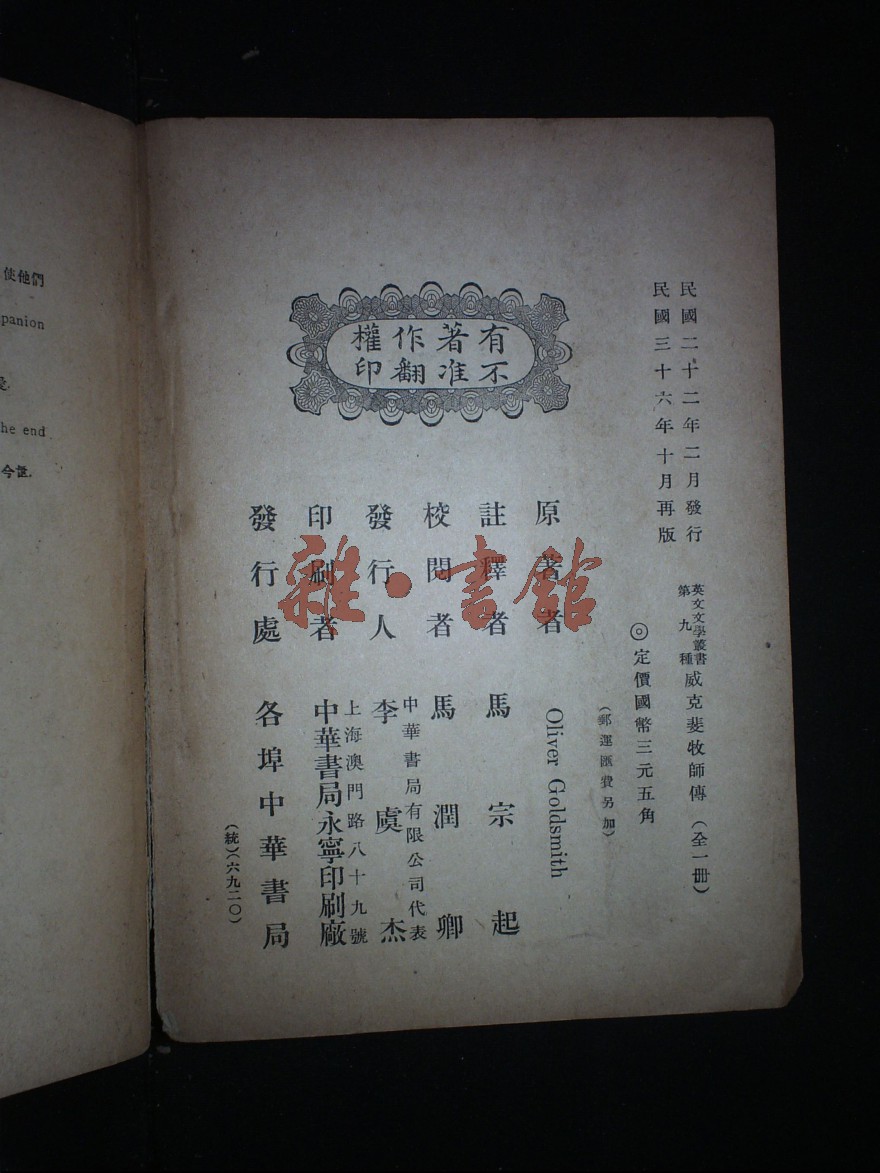 民國二十二年二月發行
民國三十六年十月再版
英文文學叢書
第九種
威克斐牧師傳（全一冊）
◎定價國幣三元五角
（郵運匯費另加）
有著作權
不准翻印
原著者 Oliver Goldsmith
註釋者 馬宗起
校閱者 馬潤卿
發行人 中華書局有限公司代表
李虞杰
印刷者 上海澳門路八十九號
中華書局永寧印刷廠
發行處 各埠中華書局
（統）（六九二〇）
雜·書館
使他們
panion
he end